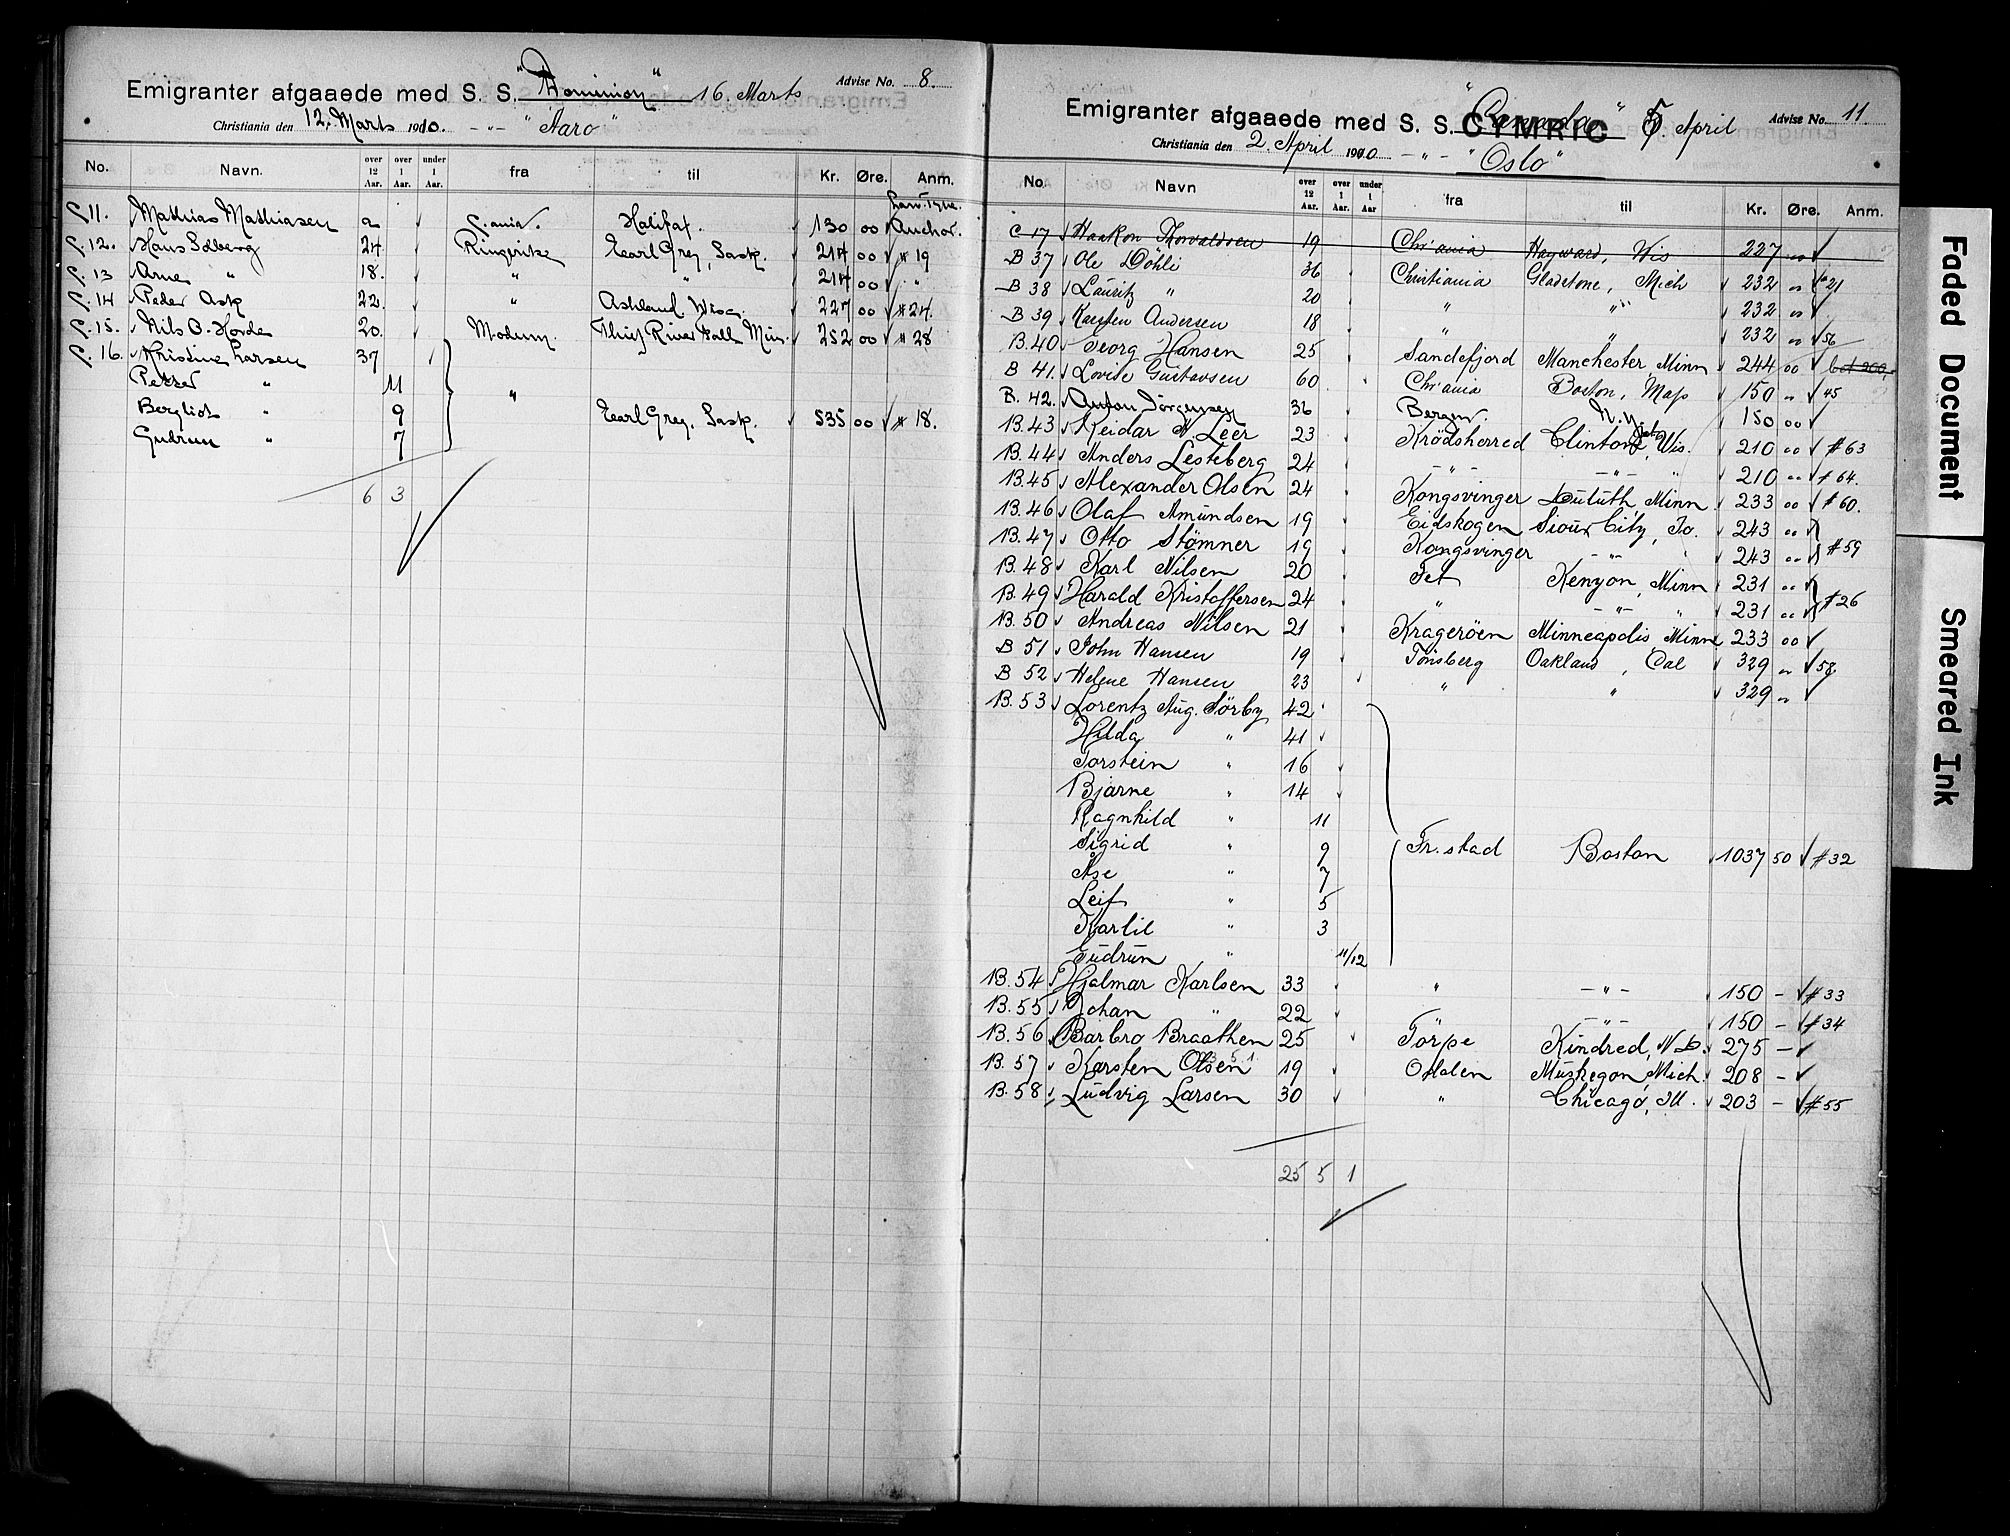 Emigranter afgaaede med S. S. "Dominion" 16. Marts Advise No. 8.
Christiania den 12. Marts 1910. -"- "Aaro"
No. Navn. over 12 Aar. over 1 Aar. under 1 Aar. fra til Kr. Øre. Anm.
C. 11. Mathias Mathiasen a C.ania. Halifax. 130 00 Anchor.
C. 12. Hans Solberg 24 Ringerike Earl Grey, Sask. 214 00 # 19
C. 13 Arne " 18. " " 214 00 "
C. 14 Peder Ask 22. " Ashland Wisc. 227 00 # 24.
C. 15. Nils O. Horde 20. Modum. Thief River Falls Min. 252 00 # 28
C. 16. Kristine Larsen 37
Petter " 11
Bergliot " 9 " Earl Grey, Sask. 535 00 # 18.
Gudrun " 7
6 3
Emigranter afgaaede med S. S. CYMRIC 5. April Advise No. 11.
Christiania den 2. April 1910 -"- "Oslo"
No. Navn over 12 Aar. over 1 Aar. under 1 Aar fra til Kr. Øre. Anm.
C 17 Haakon Thorvaldsen 19 Chr.ania Hayward, Wis 227 "
B 37 Ole Döhli 36 Christiania Gladstone, Mich 232 " # 21
B 38 Lauritz " 20 " " 232 "
B 39 Karsten Andersen 18 " " 232 " 56
B. 40 Georg Hansen 25 Sandefjord Manchester Minn 244 00
B 41. Lovise Gustavsen 60 Chr.ania Boston, Mass 150 " 45
B. 42. Anton Jörgensen 36 Bergen. N.Y. 150 00
B. 43 Reidar N. Leer 23 Krödsherred Clinton, Wis. 210 00 # 63
B. 44 Anders Lesteberg 24 -"- -"- " 210 " # 64.
B. 45 Alexander Olsen 24 Kongsvinger Duluth Minn 233 00 # 60.
B. 46 Olaf Amundsen 19 Eidskogen Sioux City, Io. 243 "
B. 47 Otto Stömner 19 Kongsvinger -"- " 243 " # 59
B. 48 Karl Nilsen 20 Fet Kenyon, Minn 231 "
B. 49 Harald Kristoffersen 24 " -"- " 231 " # 26
B. 50 Andreas Nilsen 21 Kragerøen Minneapolis Minn 233 00
B 51 John Hansen 19 Tönsberg Oakland, Cal 329 " 58
B 52 Helene Hansen 23 " " 329 "
B. 53 Lorentz Aug. Sörby 42
Hilda " 41
Torstein " 16
Bjarne " 14
Ragnhild " 11
Sigrid " 9 Fr.stad Boston 1037 50 # 32
Åse " 7
Leif " 5
Kartil " 3
Gudrun " 11/12
B. 54 Hjalmar Karlsen 33 " -"- 150 - # 33
B. 55 Johan " 22 -"- 150 - # 34
B. 56 Barbro Braathen 25 Torpe Kindred, N.D. 275 -
B. 57 Karsten Olsen 19 Odalen Muskegon, Mich. 208 -
B. 58 Ludvig Larsen 30 " Chicago, Ill. 203 - # 55
25 5 1
Faded Document
Smeared Ink